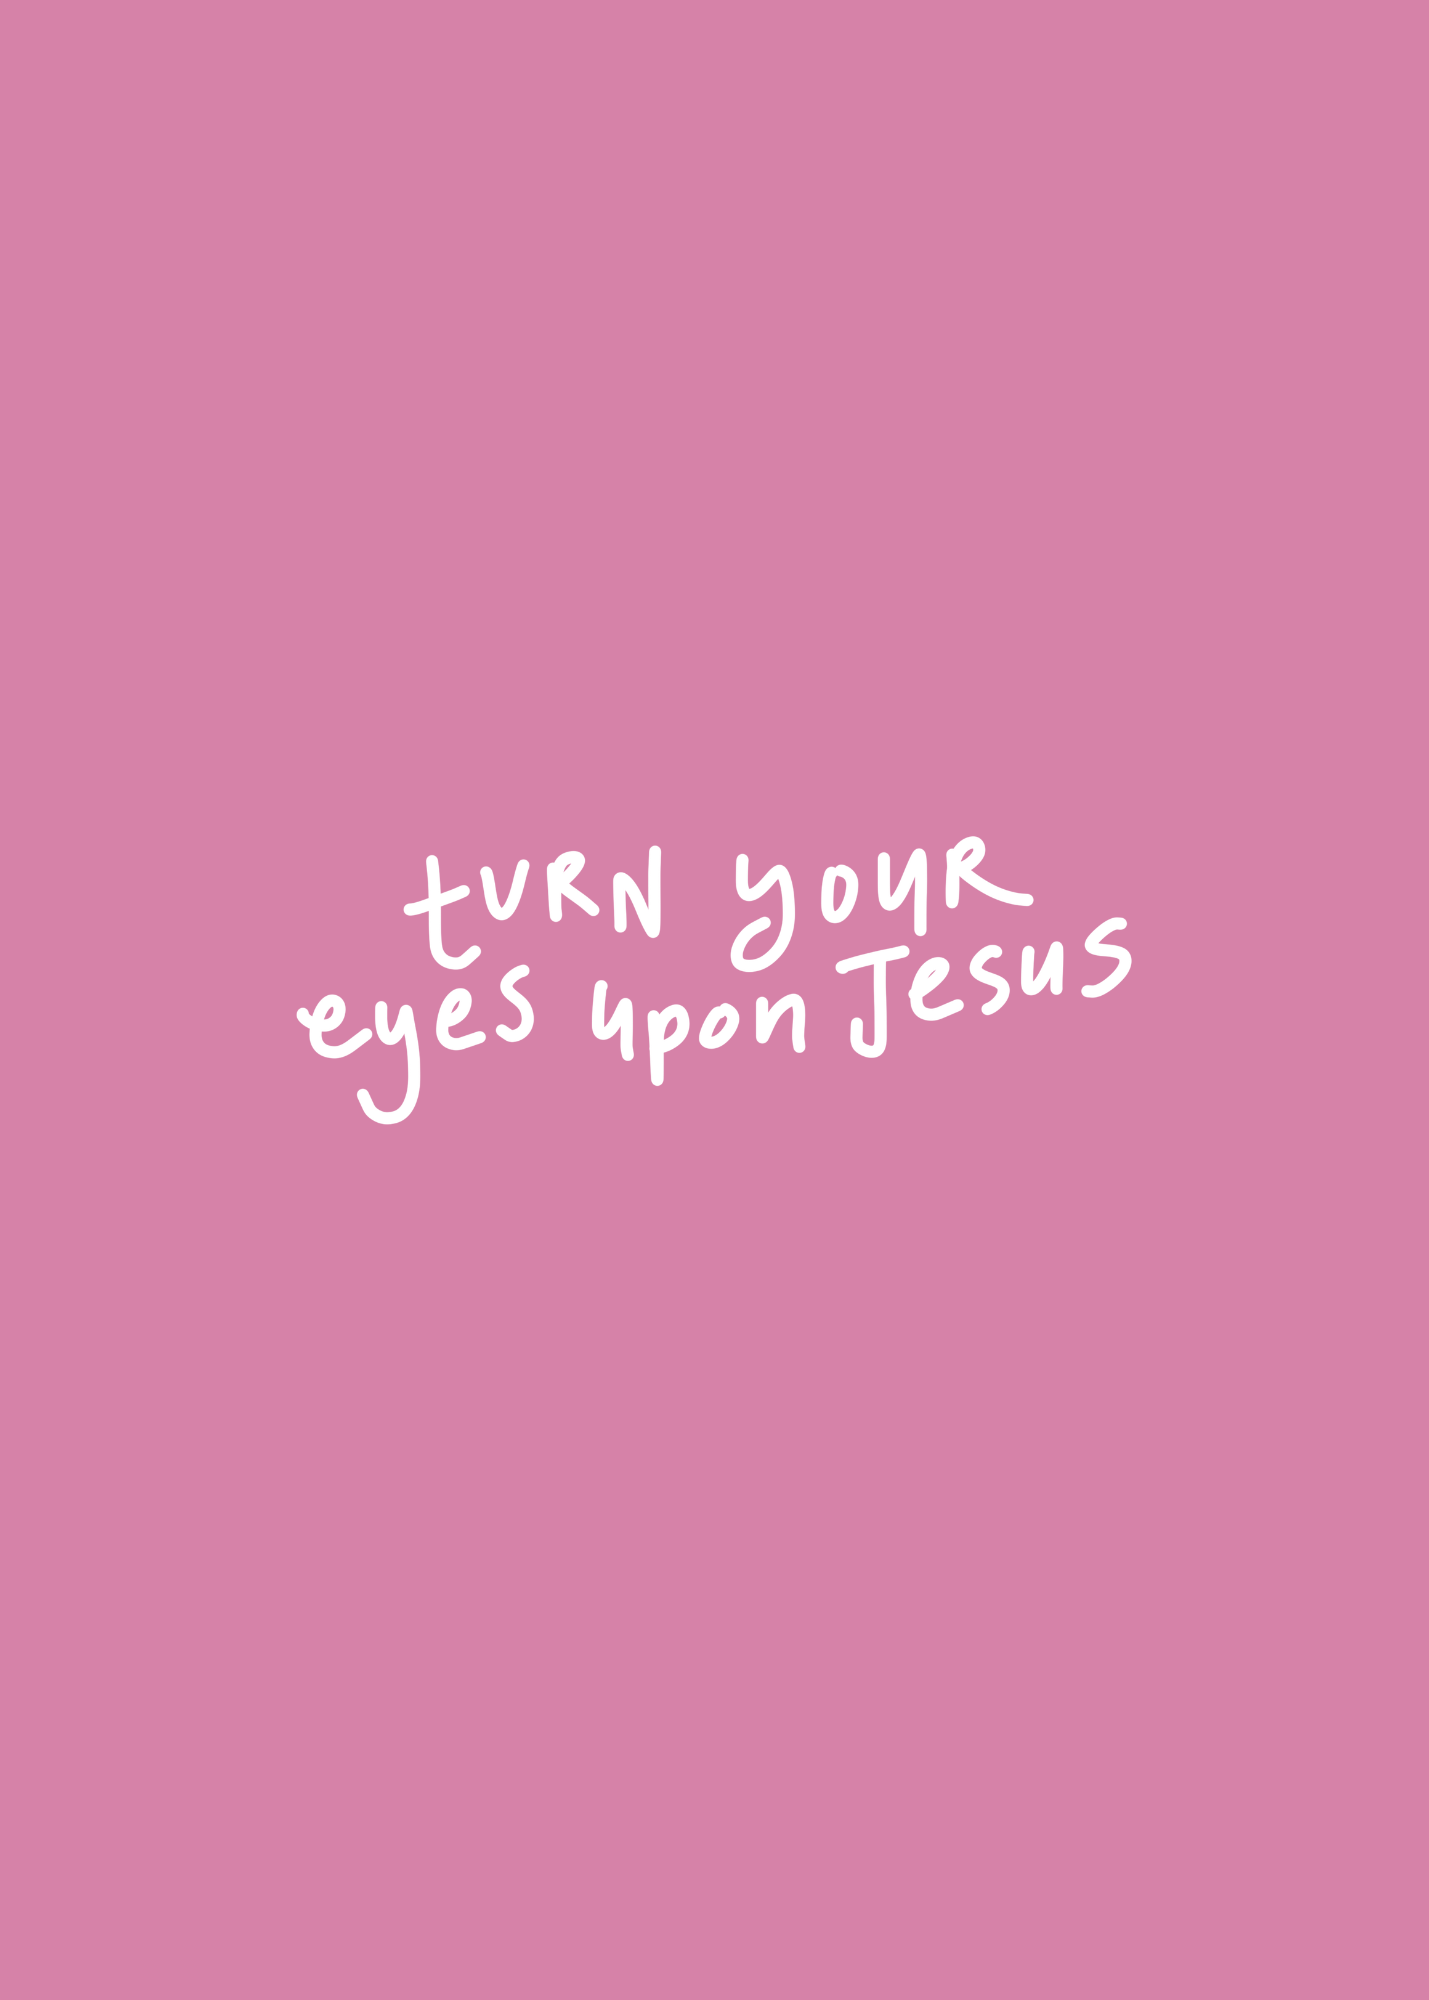 tURN youR
eyes upon Jesus